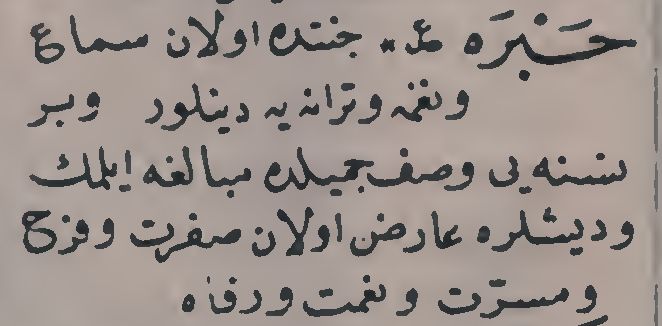 حَنْبَرَه عـ" جنتده اولان سماع
ونغمه وترانه يه دينلور وبر
نسنه يى وصف جميلده مبالغه ايلمك
وديشلره عارض اولان صفرت وفرح
ومسرّت ونعمت ورفاه